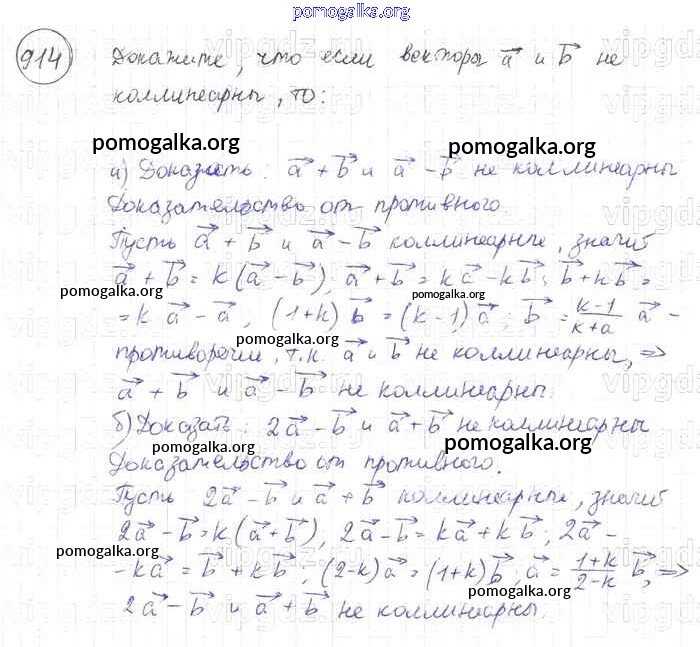 pomogalka.org
914 Докажите, что если векторы a⃗ и b⃗ не
коллинеарны, то:
pomogalka.org pomogalka.org
а) Доказать: a⃗ + b⃗ и a⃗ - b⃗ не коллинеарны
Доказательство от противного.
Пусть a⃗ + b⃗ и a⃗ - b⃗ коллинеарные, значит
a⃗ + b⃗ = k(a⃗ - b⃗), a⃗ + b⃗ = ka⃗ - kb⃗; b⃗ + kb⃗ =
pomogalka.org pomogalka.org
= ka⃗ - a⃗; (1+k)b⃗ = (k-1)a⃗; b⃗ = (k-1)/(k+a) a⃗ -
pomogalka.org
противоречие, т.к. a⃗ и b⃗ не коллинеарны, =>
a⃗ + b⃗ и a⃗ - b⃗ не коллинеарны.
pomogalka.org
б) Доказать: 2a⃗ - b⃗ и a⃗ + b⃗ не коллинеарны
pomogalka.org pomogalka.org
Доказательство от противного.
Пусть 2a⃗ - b⃗ и a⃗ + b⃗ коллинеарные, значит
2a⃗ - b⃗ = k(a⃗ + b⃗), 2a⃗ - b⃗ = ka⃗ + kb⃗; 2a⃗ -
pomogalka.org
- ka⃗ = b⃗ + kb⃗; (2-k)a⃗ = (1+k)b⃗, a⃗ = (1+k)/(2-k) b⃗, =>
pomogalka.org
2a⃗ - b⃗ и a⃗ + b⃗ не коллинеарны.